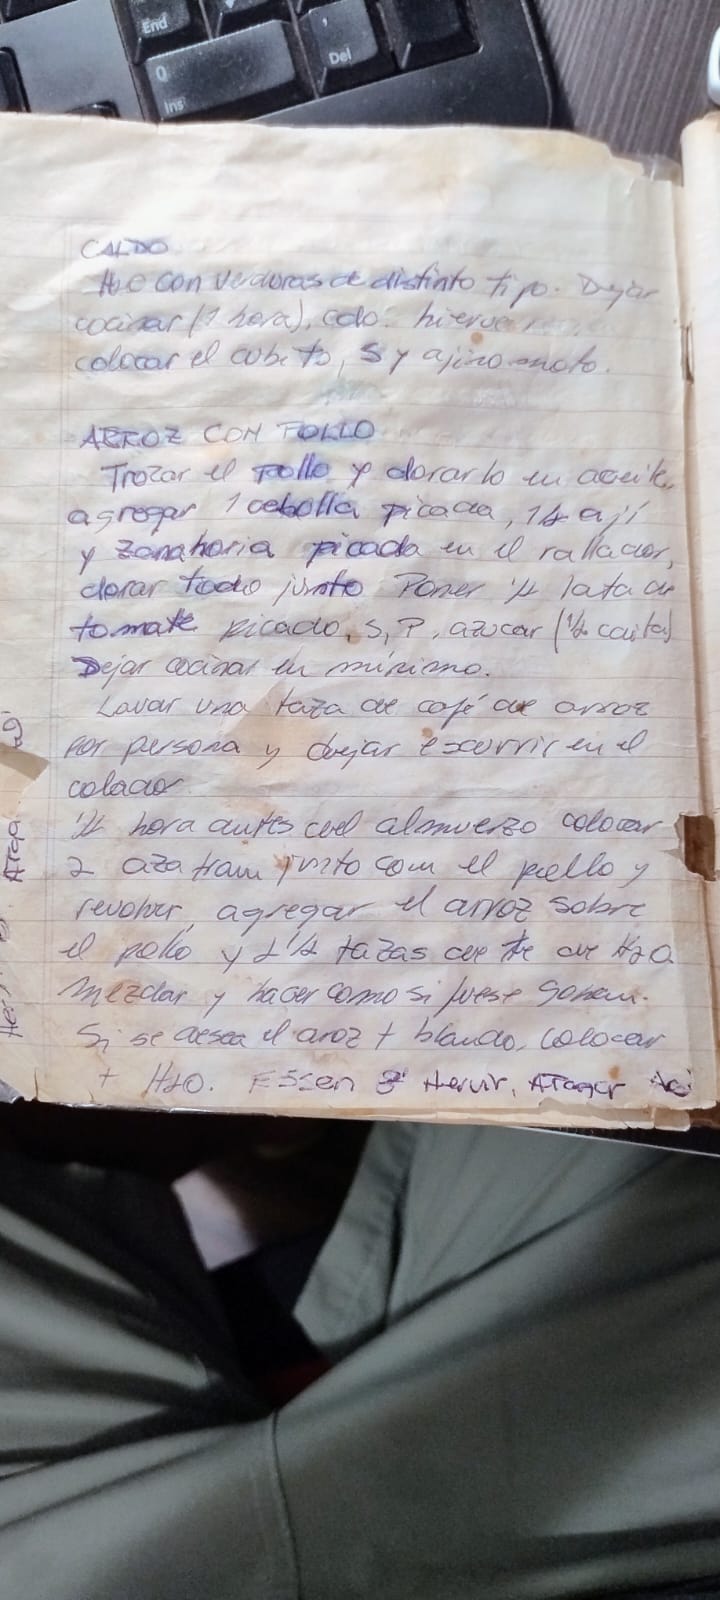 End
0
Ins
Del
CALDO
H2O con verduras de distinto tipo. Dejar
cocinar (1 hora), hierve
colocar el cubito, S y ajinomoto.
ARROZ CON POLLO
Trozar el pollo y dorarlo en aceite,
agregar 1 cebolla picada, 1/2 ají
y zanahoria picada en el rallador,
dorar todo junto Poner 1/2 lata de
tomate picado, S, P, azúcar (1/2 cdita)
Dejar cocinar en mínimo.
Lavar una taza de café de arroz
por persona y dejar escurrir en el
colador
1/2 hora antes del almuerzo colocar
2 azafram junto com el pollo y
revolver, agregar el arroz sobre
el pollo y 2 1/2 tazas de te de H2O
mezclar y hacer como si fuese
Si se desea el aroz + blando, colocar
+ H2O. Essen 3' Hervir,